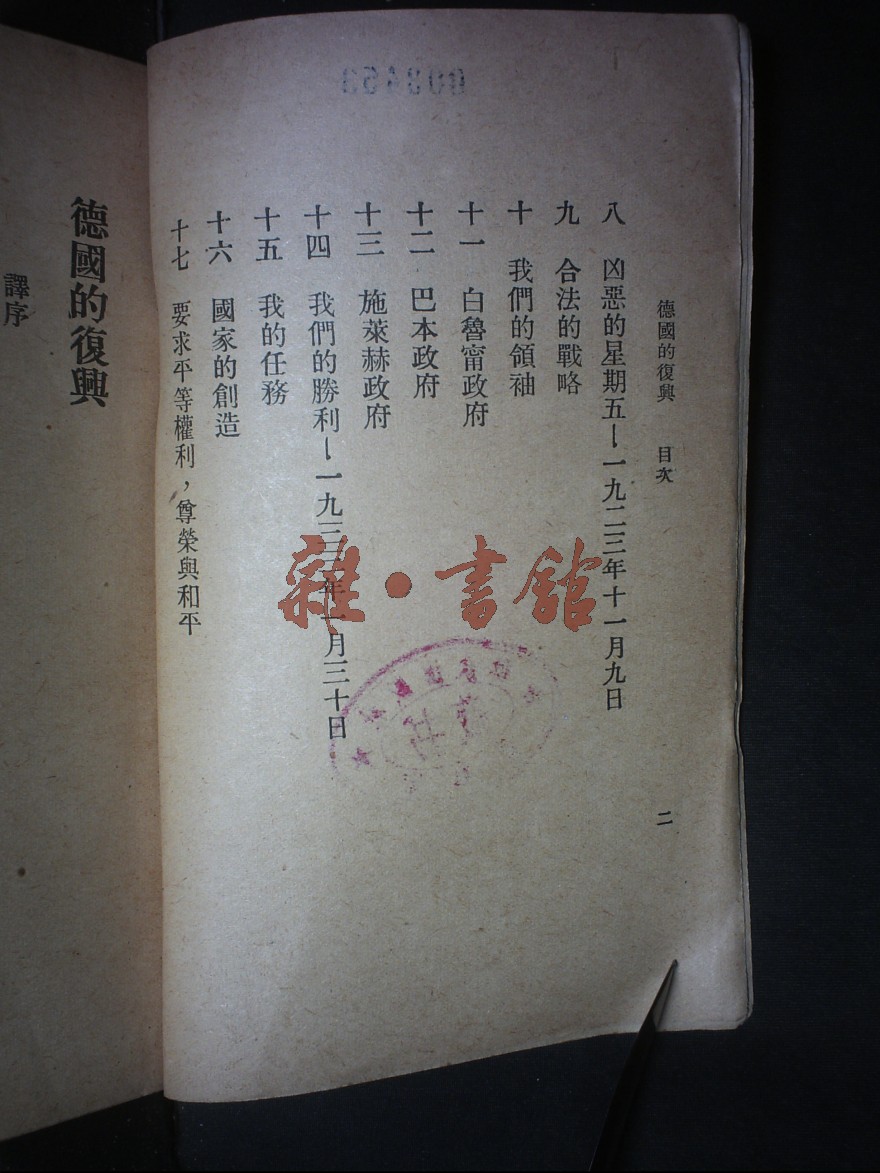 德國的復興 目次 二
八 凶惡的星期五—一九二三年十一月九日
九 合法的戰略
十 我們的領袖
十一 白魯甯政府
十二 巴本政府
十三 施萊赫政府
十四 我們的勝利—一九三三年一月三十日
十五 我的任務
十六 國家的創造
十七 要求平等權利，尊榮與和平
德國的復興
譯序
雜·書館
003453